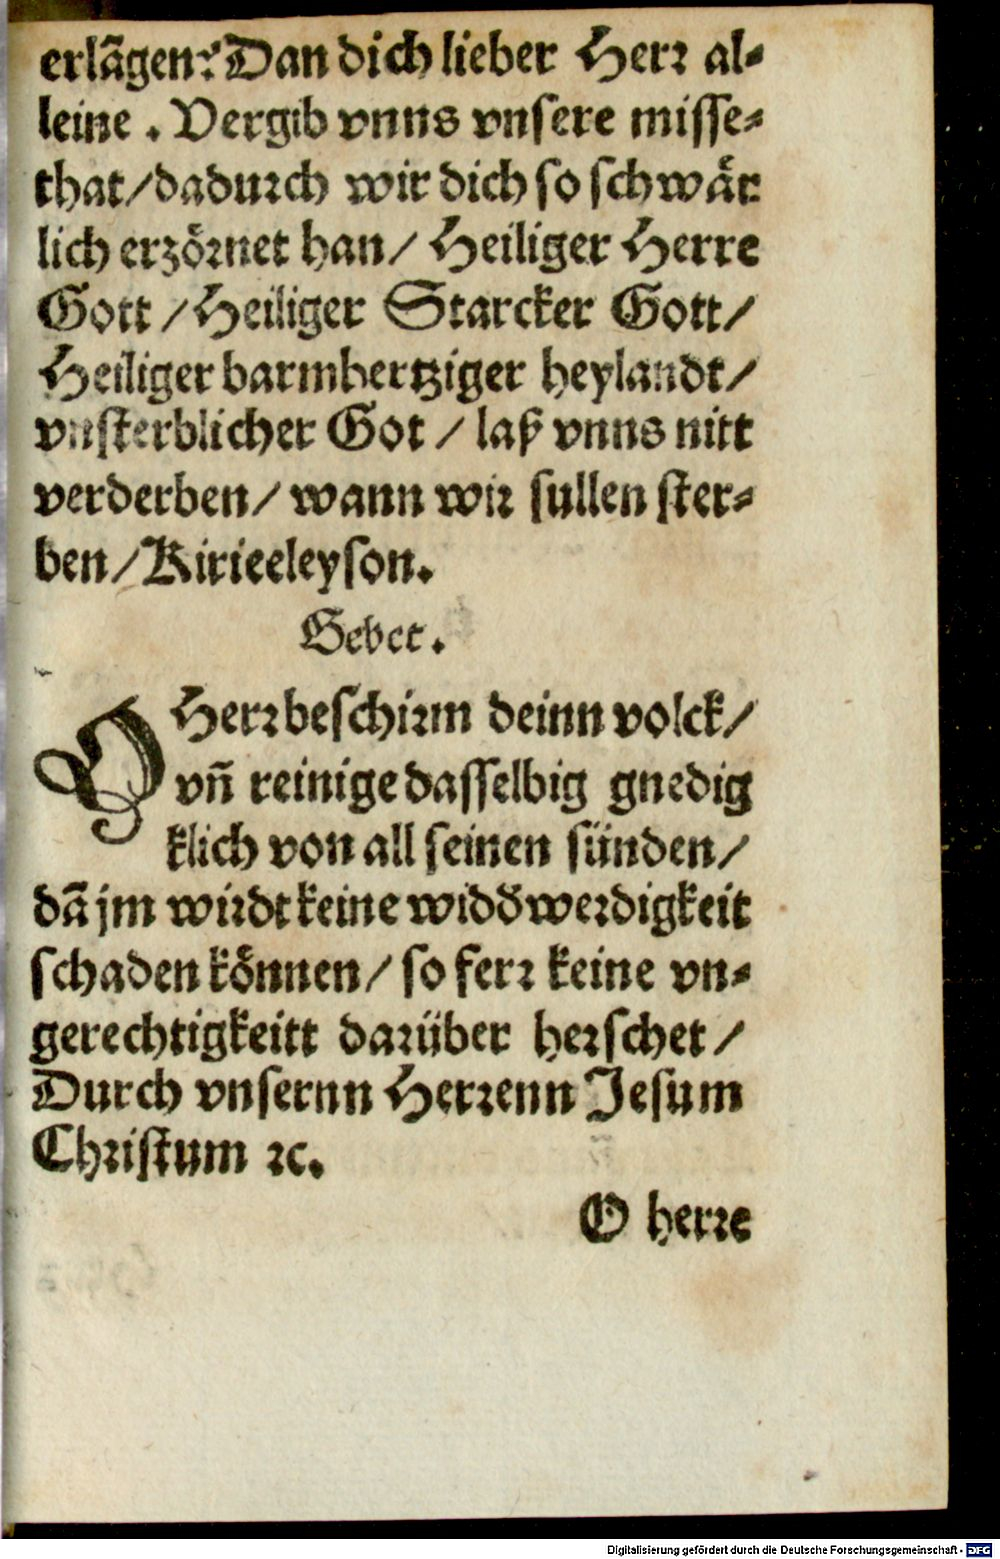 erlãgen? Dan dich lieber Herꝛ al⸗
leine . Vergib vnns vnsere misse⸗
that/daduꝛch wir dich so schwaͤr
lich erzoͤꝛnet han/ Heiliger Herre
Gott /Heiliger Starcker Gott/
Heiliger barmhertziger heylandt/
vnsterblicher Got / laß vnns nitt
verderben/ wann wiꝛ sullen ster⸗
ben/Kirieeleyson.
Gebet.
O Herꝛ beschiꝛm deinn volck/
vñ reinige dasselbig gnedig
klich von all seinen sünden/
dã jm wiꝛdt keine widd̕weꝛdigkeit
schaden koͤnnen/ so ferꝛ keine vn⸗
gerechtigkeitt daꝛüber heꝛschet/
Durch vnsernn Herꝛenn Jesum
Chꝛistum ꝛc.
O herꝛe
Digitalisierung gefördert durch die Deutsche Forschungsgemeinschaft - DFG